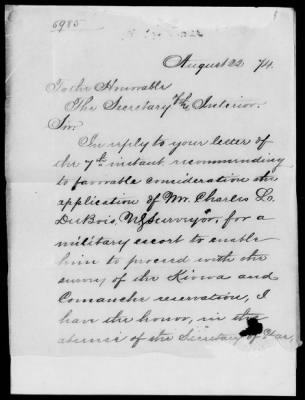 5985
August 22 74.
To the Honorable
The Secretary of the Interior.
Sir:
In reply to your letter of
the 7th instant, recommending
to favorable consideration the
application of Mr. Charles L.
DuBois, US Surveyor, for a
military escort to enable
him to proceed with the
survey of the Kiowa and
Comanche reservation, I
have the honor, in the
absence of the Secretary of War,